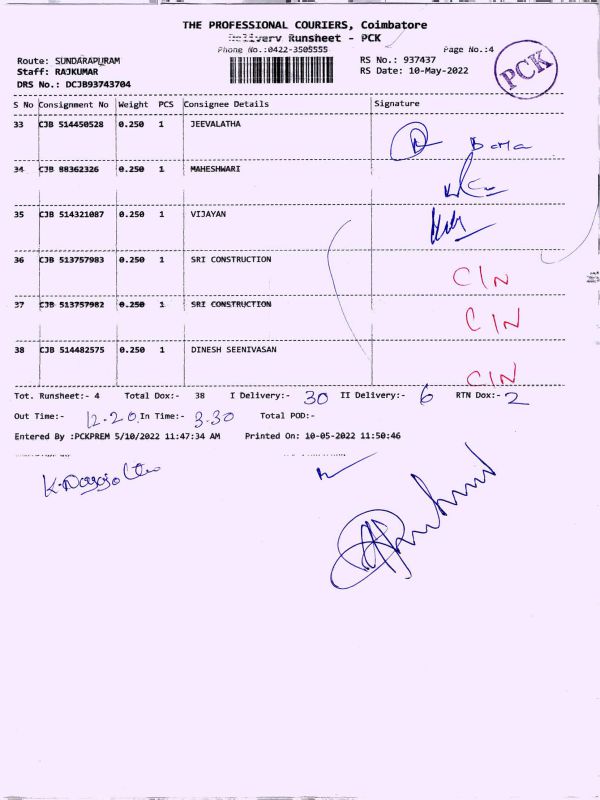 THE PROFESSIONAL COURIERS, Coimbatore
Delivery Runsheet - PCK
Phone No.:0422-3505555 Page No.:4
Route: SUNDARAPURAM RS No.: 937437
Staff: RAJKUMAR RS Date: 10-May-2022
DRS No.: DCJB93743704
PCK
S No Consignment No Weight PCS Consignee Details Signature
33 CJB 514450528 0.250 1 JEEVALATHA
34 CJB 88362326 0.250 1 MAHESHWARI
35 CJB 514321087 0.250 1 VIJAYAN
36 CJB 513757983 0.250 1 SRI CONSTRUCTION C/N
37 CJB 513757982 0.250 1 SRI CONSTRUCTION C/N
38 CJB 514482575 0.250 1 DINESH SEENIVASAN C/N
Tot. Runsheet:- 4 Total Dox:- 38 I Delivery:- 30 II Delivery:- 6 RTN Dox:- 2
Out Time:- 12.20 In Time:- 3.30 Total POD:-
Entered By :PCKPREM 5/10/2022 11:47:34 AM Printed On: 10-05-2022 11:50:46